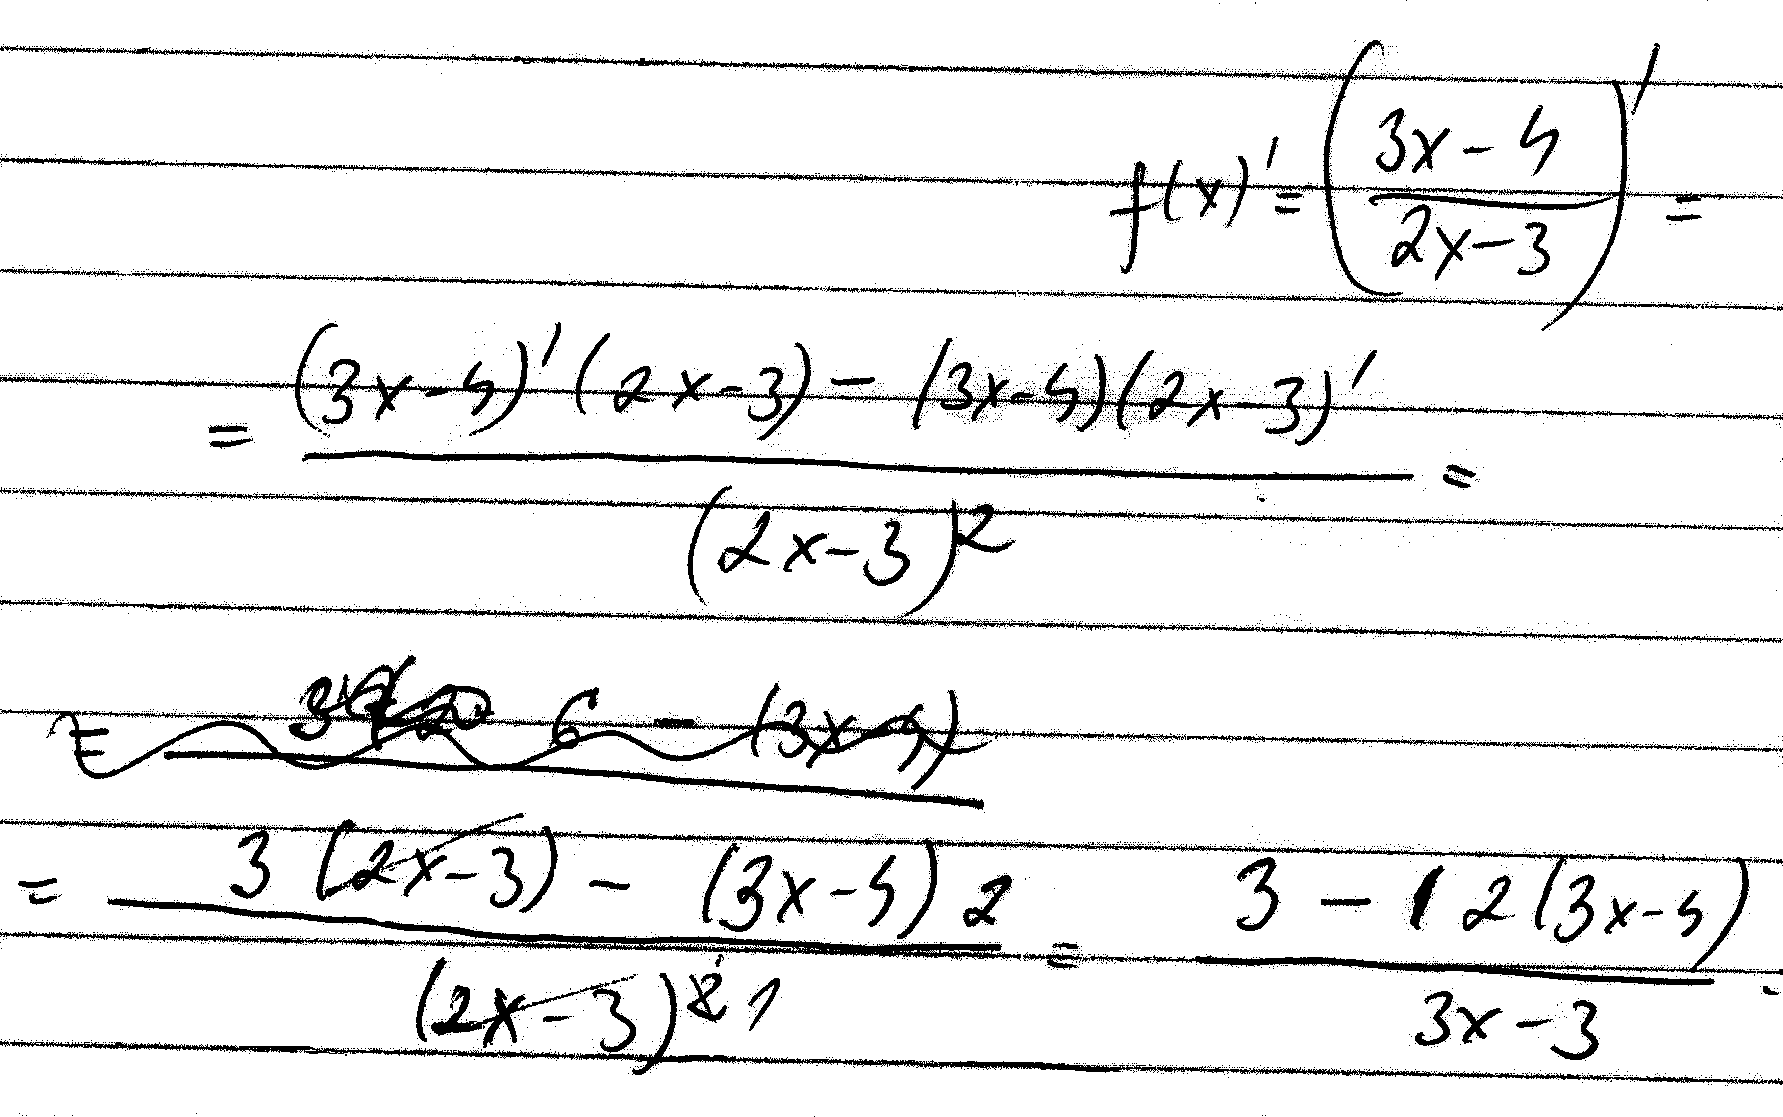 f(x)' = ((3x-4)/(2x-3))' =
= ((3x-4)'(2x-3) - (3x-4)(2x-3)')/(2x-3)^2 =
= 6 - (3x-4)
= (3(2x-3) - (3x-4)2)/(2x-3)^2 1 = (3 - 2(3x-4))/(3x-3).